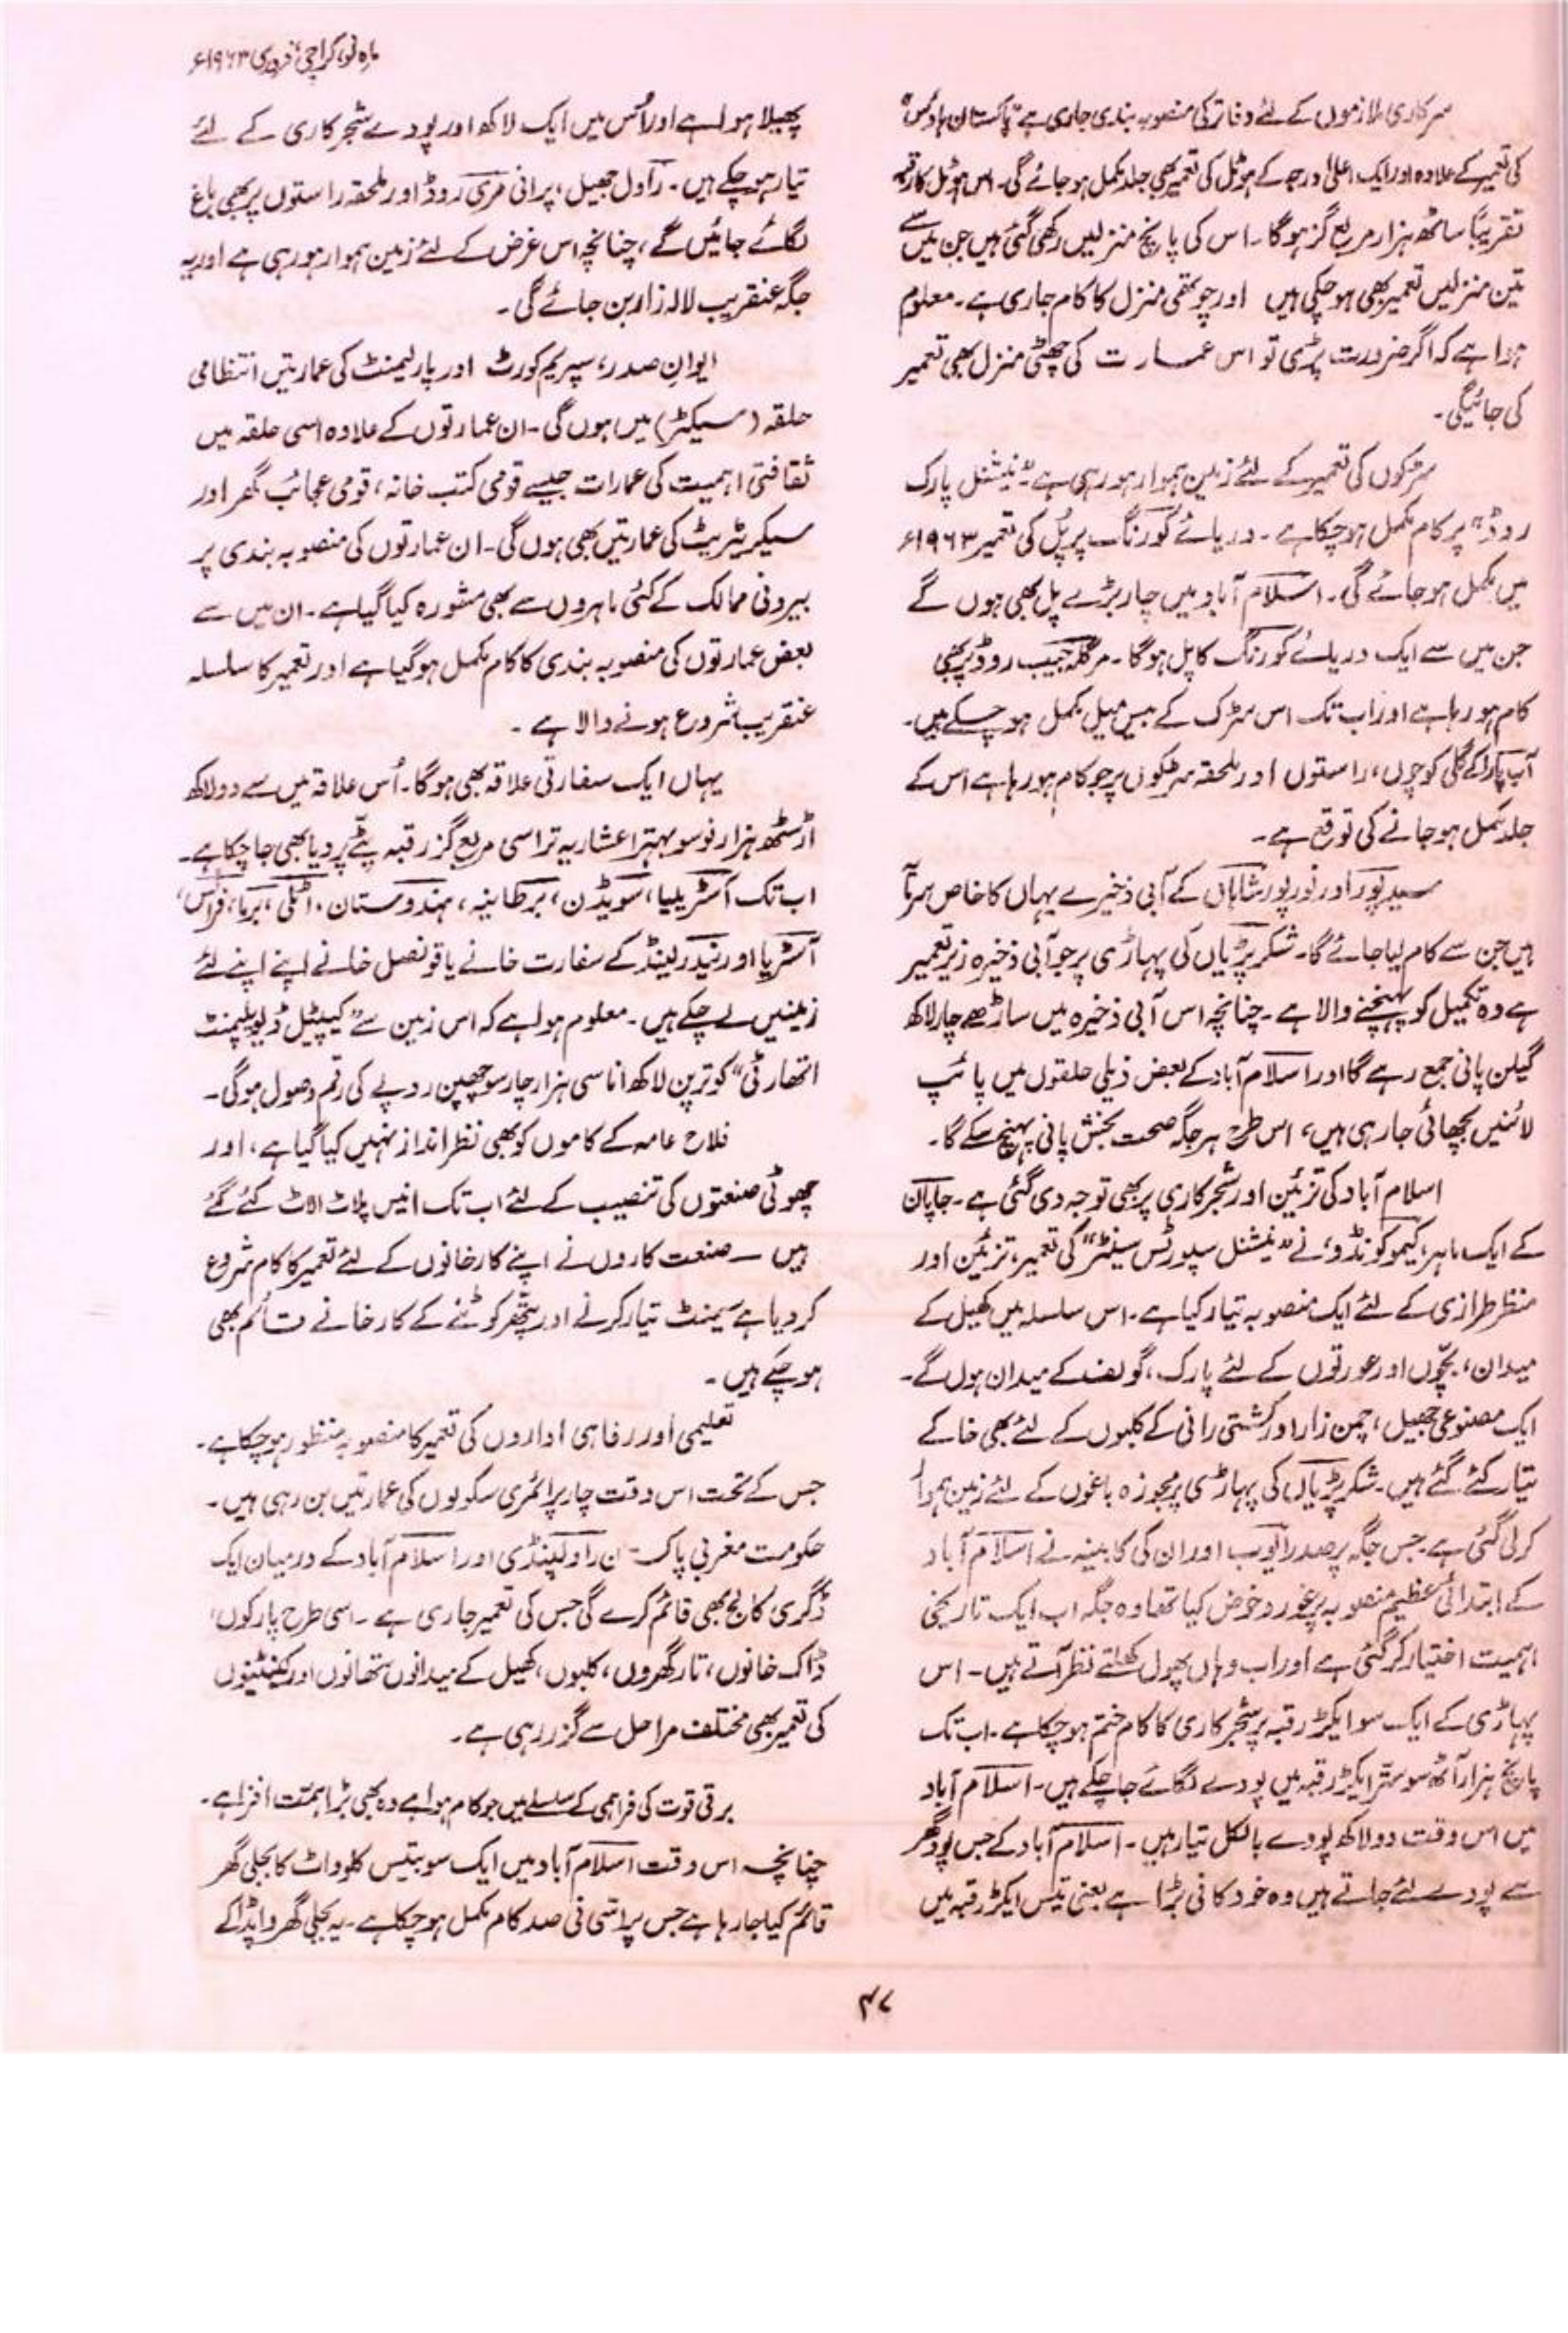 ماہِ نو، کراچی، فروری ۱۹۶۳ء
سرکاری ملازموں کے لئے دفاتر کی منصوبہ بندی جاری ہے "پاکستان ہاؤس"
کی تعمیر کے علاوہ اور ایک اعلیٰ درجہ کے ہوٹل کی تعمیر بھی جلد مکمل ہو جائے گی۔ اس ہوٹل کا رقبہ
تقریباً ساٹھ ہزار مربع گز ہوگا۔ اس کی پانچ منزلیں رکھی گئی ہیں جن میں سے
تین منزلیں تعمیر بھی ہو چکی ہیں اور چوتھی منزل کا کام جاری ہے۔ معلوم
ہوا ہے کہ اگر ضرورت پڑی تو اس عمارت کی چھٹی منزل بھی تعمیر
کی جائیگی۔
سڑکوں کی تعمیر کے لئے زمین ہموار ہو رہی ہے "نیشنل پارک
روڈ" پر کام مکمل ہو چکا ہے۔ دریائے کورنگ پر پُل کی تعمیر ۱۹۶۳ء
میں مکمل ہو جائے گی۔ اسلام آباد میں چار بڑے پل بھی ہوں گے
جن میں سے ایک دریائے کورنگ کا پل ہوگا۔ مرگلہ حبیب روڈ پر بھی
کام ہو رہا ہے اور اب تک اس سڑک کے بیس میل مکمل ہو چکے ہیں۔
آب پارا کے گلی کوچوں، راستوں اور ملحقہ سڑکوں پر جو کام ہو رہا ہے اس کے
جلد مکمل ہو جانے کی توقع ہے۔
سیدپور اور نورپور شاہاں کے آبی ذخیرے یہاں کا خاص سرمایہ
ہیں جن سے کام لیا جائے گا۔ شکرپڑیاں کی پہاڑی پر جو آبی ذخیرہ زیرِتعمیر
ہے وہ تکمیل کو پہنچنے والا ہے۔ چنانچہ اس آبی ذخیرہ میں ساڑھے چار لاکھ
گیلن پانی جمع رہے گا اور اسلام آباد کے بعض ذیلی حلقوں میں پائپ
لائنیں بچھائی جا رہی ہیں، اس طرح ہر جگہ صحت بخش پانی پہنچ سکے گا۔
اسلام آباد کی تزئین اور شجرکاری پر بھی توجہ دی گئی ہے۔ جاپان
کے ایک ماہر، کیموکونڈو، نے "نیشنل سپورٹس سینٹر" کی تعمیر، تزئین اور
منظر طرازی کے لئے ایک منصوبہ تیار کیا ہے۔ اس سلسلہ میں کھیل کے
میدان، بچّوں اور عورتوں کے لئے پارک، گولف کے میدان ہوں گے۔
ایک مصنوعی جھیل، چمن زار اور کشتی رانی کے کلبوں کے لئے بھی خاکے
تیار کئے گئے ہیں۔ شکرپڑیاں کی پہاڑی پر مجوزہ باغوں کے لئے زمین ہموار
کرلی گئی ہے۔ جس جگہ پر صدر ایوب اور ان کی کابینہ نے اسلام آباد
کے ابتدائی عظیم منصوبہ پر غور و خوض کیا تھا وہ جگہ اب ایک تاریخی
اہمیت اختیار کر گئی ہے اور اب وہاں پھول کھلتے نظر آتے ہیں۔ اس
پہاڑی کے ایک سو ایکڑ رقبہ پر شجر کاری کا کام ختم ہو چکا ہے۔ اب تک
پانچ ہزار آٹھ سو ستّر ایکڑ رقبہ میں پودے لگائے جا چکے ہیں۔ اسلام آباد
میں اس وقت دو لاکھ پودے بالکل تیار ہیں۔ اسلام آباد کے جس پود گھر
سے پودے لئے جاتے ہیں وہ خود کافی بڑا ہے یعنی تیس ایکڑ رقبہ میں
پھیلا ہوا ہے اور اُس میں ایک لاکھ اور پودے شجر کاری کے لئے
تیار ہو چکے ہیں۔ راول جھیل، پرانی مری روڈ اور ملحقہ راستوں پر بھی باغ
لگائے جائیں گے، چنانچہ اس غرض کے لئے زمین ہموار ہو رہی ہے اور یہ
جگہ عنقریب لالہ زار بن جائے گی۔
ایوانِ صدر، سپریم کورٹ اور پارلیمنٹ کی عمارتیں انتظامی
حلقہ (سیکٹر) میں ہوں گی۔ ان عمارتوں کے علاوہ اسی حلقہ میں
ثقافتی اہمیت کی عمارات جیسے قومی کتب خانہ، قومی عجائب گھر اور
سیکریٹریٹ کی عمارتیں بھی ہوں گی۔ ان عمارتوں کی منصوبہ بندی پر
بیرونی ممالک کے کئی ماہروں سے بھی مشورہ کیا گیا ہے۔ ان میں سے
بعض عمارتوں کی منصوبہ بندی کا کام مکمل ہو گیا ہے اور تعمیر کا سلسلہ
عنقریب شروع ہونے والا ہے۔
یہاں ایک سفارتی علاقہ بھی ہوگا۔ اُس علاقہ میں سے دو لاکھ
اڑسٹھ ہزار نو سو بہتر اعشاریہ تراسی مربع گز رقبہ پٹے پر دیا بھی جا چکا ہے۔
اب تک آسٹریلیا، سویڈن، برطانیہ، ہندوستان، اٹلی، برما، فرانس،
آسٹریا اور نیدرلینڈ کے سفارت خانے یا قونصل خانے اپنے اپنے لئے
زمینیں لے چکے ہیں۔ معلوم ہوا ہے کہ اس زمین سے "کیپٹیل ڈیویلپمنٹ
اتھارٹی" کو ترپن لاکھ اناسی ہزار چار سو چھپن روپے کی رقم وصول ہوگی۔
فلاح عامہ کے کاموں کو بھی نظرانداز نہیں کیا گیا ہے، اور
چھوٹی صنعتوں کی تنصیب کے لئے اب تک انیس پلاٹ الاٹ کئے گئے
ہیں — صنعت کاروں نے اپنے کارخانوں کے لئے تعمیر کا کام شروع
کر دیا ہے سیمنٹ تیار کرنے اور پتّھر کوٹنے کے کارخانے قائم بھی
ہو چکے ہیں۔
تعلیمی اور رفاہی اداروں کی تعمیر کا منصوبہ منظور ہو چکا ہے۔
جس کے تحت اس وقت چار پرائمری سکولوں کی عمارتیں بن رہی ہیں۔
حکومت مغربی پاکستان راولپنڈی اور اسلام آباد کے درمیان ایک
ڈگری کالج بھی قائم کرے گی جس کی تعمیر جاری ہے۔ اسی طرح پارکوں،
ڈاک خانوں، تارگھروں، کلبوں، کھیل کے میدانوں، تھانوں اور کینٹینوں
کی تعمیر بھی مختلف مراحل سے گزر رہی ہے۔
برقی قوت کی فراہمی کے سلسلے میں جو کام ہوا ہے وہ بھی بڑا ہمت افزا ہے۔
چنانچہ اس وقت اسلام آباد میں ایک سو بتیس کلوواٹ کا بجلی گھر
قائم کیا جا رہا ہے جس پر اسّی فی صد کام مکمل ہو چکا ہے۔ یہ بجلی گھر واپڈا کے
۴۷